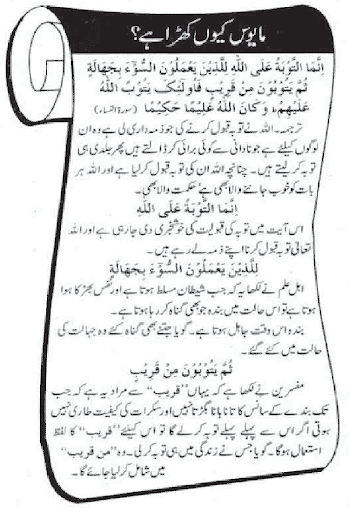 مایوس کیوں کھڑا ہے؟
اِنَّمَا التَّوْبَةُ عَلَى اللّٰهِ لِلَّذِيْنَ يَعْمَلُوْنَ السُّوْٓءَ بِجَهَالَةٍ
ثُمَّ يَتُوْبُوْنَ مِنْ قَرِيْبٍ فَاُولٰٓئِكَ يَتُوْبُ اللّٰهُ
عَلَيْهِمْ، وَكَانَ اللّٰهُ عَلِيْمًا حَكِيْمًا (سورۃ النساء)
ترجمہ۔ اللہ نے توبہ قبول کرنے کی جو ذمہ داری لی ہے وہ ان
لوگوں کیلئے ہے جو نادانی سے کوئی برائی کر ڈالتے ہیں پھر جلدی ہی
توبہ کر لیتے ہیں۔ چنانچہ اللہ ان کی توبہ قبول کر لیتا ہے اور اللہ ہر
بات کو خوب جاننے والا بھی ہے حکمت والا بھی۔
اِنَّمَا التَّوْبَةُ عَلَى اللّٰهِ
اس آیت میں توبہ کی قبولیت کی خوشخبری دی جا رہی ہے اور اللہ
تعالی توبہ قبول کرنا اپنے ذمہ لے رہے ہیں۔
لِلَّذِيْنَ يَعْمَلُوْنَ السُّوْٓءَ بِجَهَالَةٍ
اہل علم نے لکھا ہے کہ جب شیطان مسلط ہوتا ہے اور نفس بھڑکا ہوا
ہوتا ہے تو اس حالت میں بندہ جو بھی گناہ کر رہا ہوتا ہے۔
بندہ اس وقت جاہل ہوتا ہے۔ گویا جتنے بھی گناہ کئے گئے وہ جہالت کی
حالت میں کئے گئے۔
ثُمَّ يَتُوْبُوْنَ مِنْ قَرِيْبٍ
مفسرین نے لکھا ہے کہ یہاں ”قریب“ سے مراد یہ ہے کہ جب
تک بندے کے سانس کا تانا بانا بگڑتا نہیں اور سکرات کی کیفیت طاری نہیں
ہوتی اگر اس سے پہلے پہلے توبہ کر لے گا تو اس کیلئے ”قریب“ کا لفظ
استعمال ہوگا۔ گویا جس نے زندگی میں ہی توبہ کر لی۔ وہ ”من قریب“
میں شامل کر لیا جائے گا۔